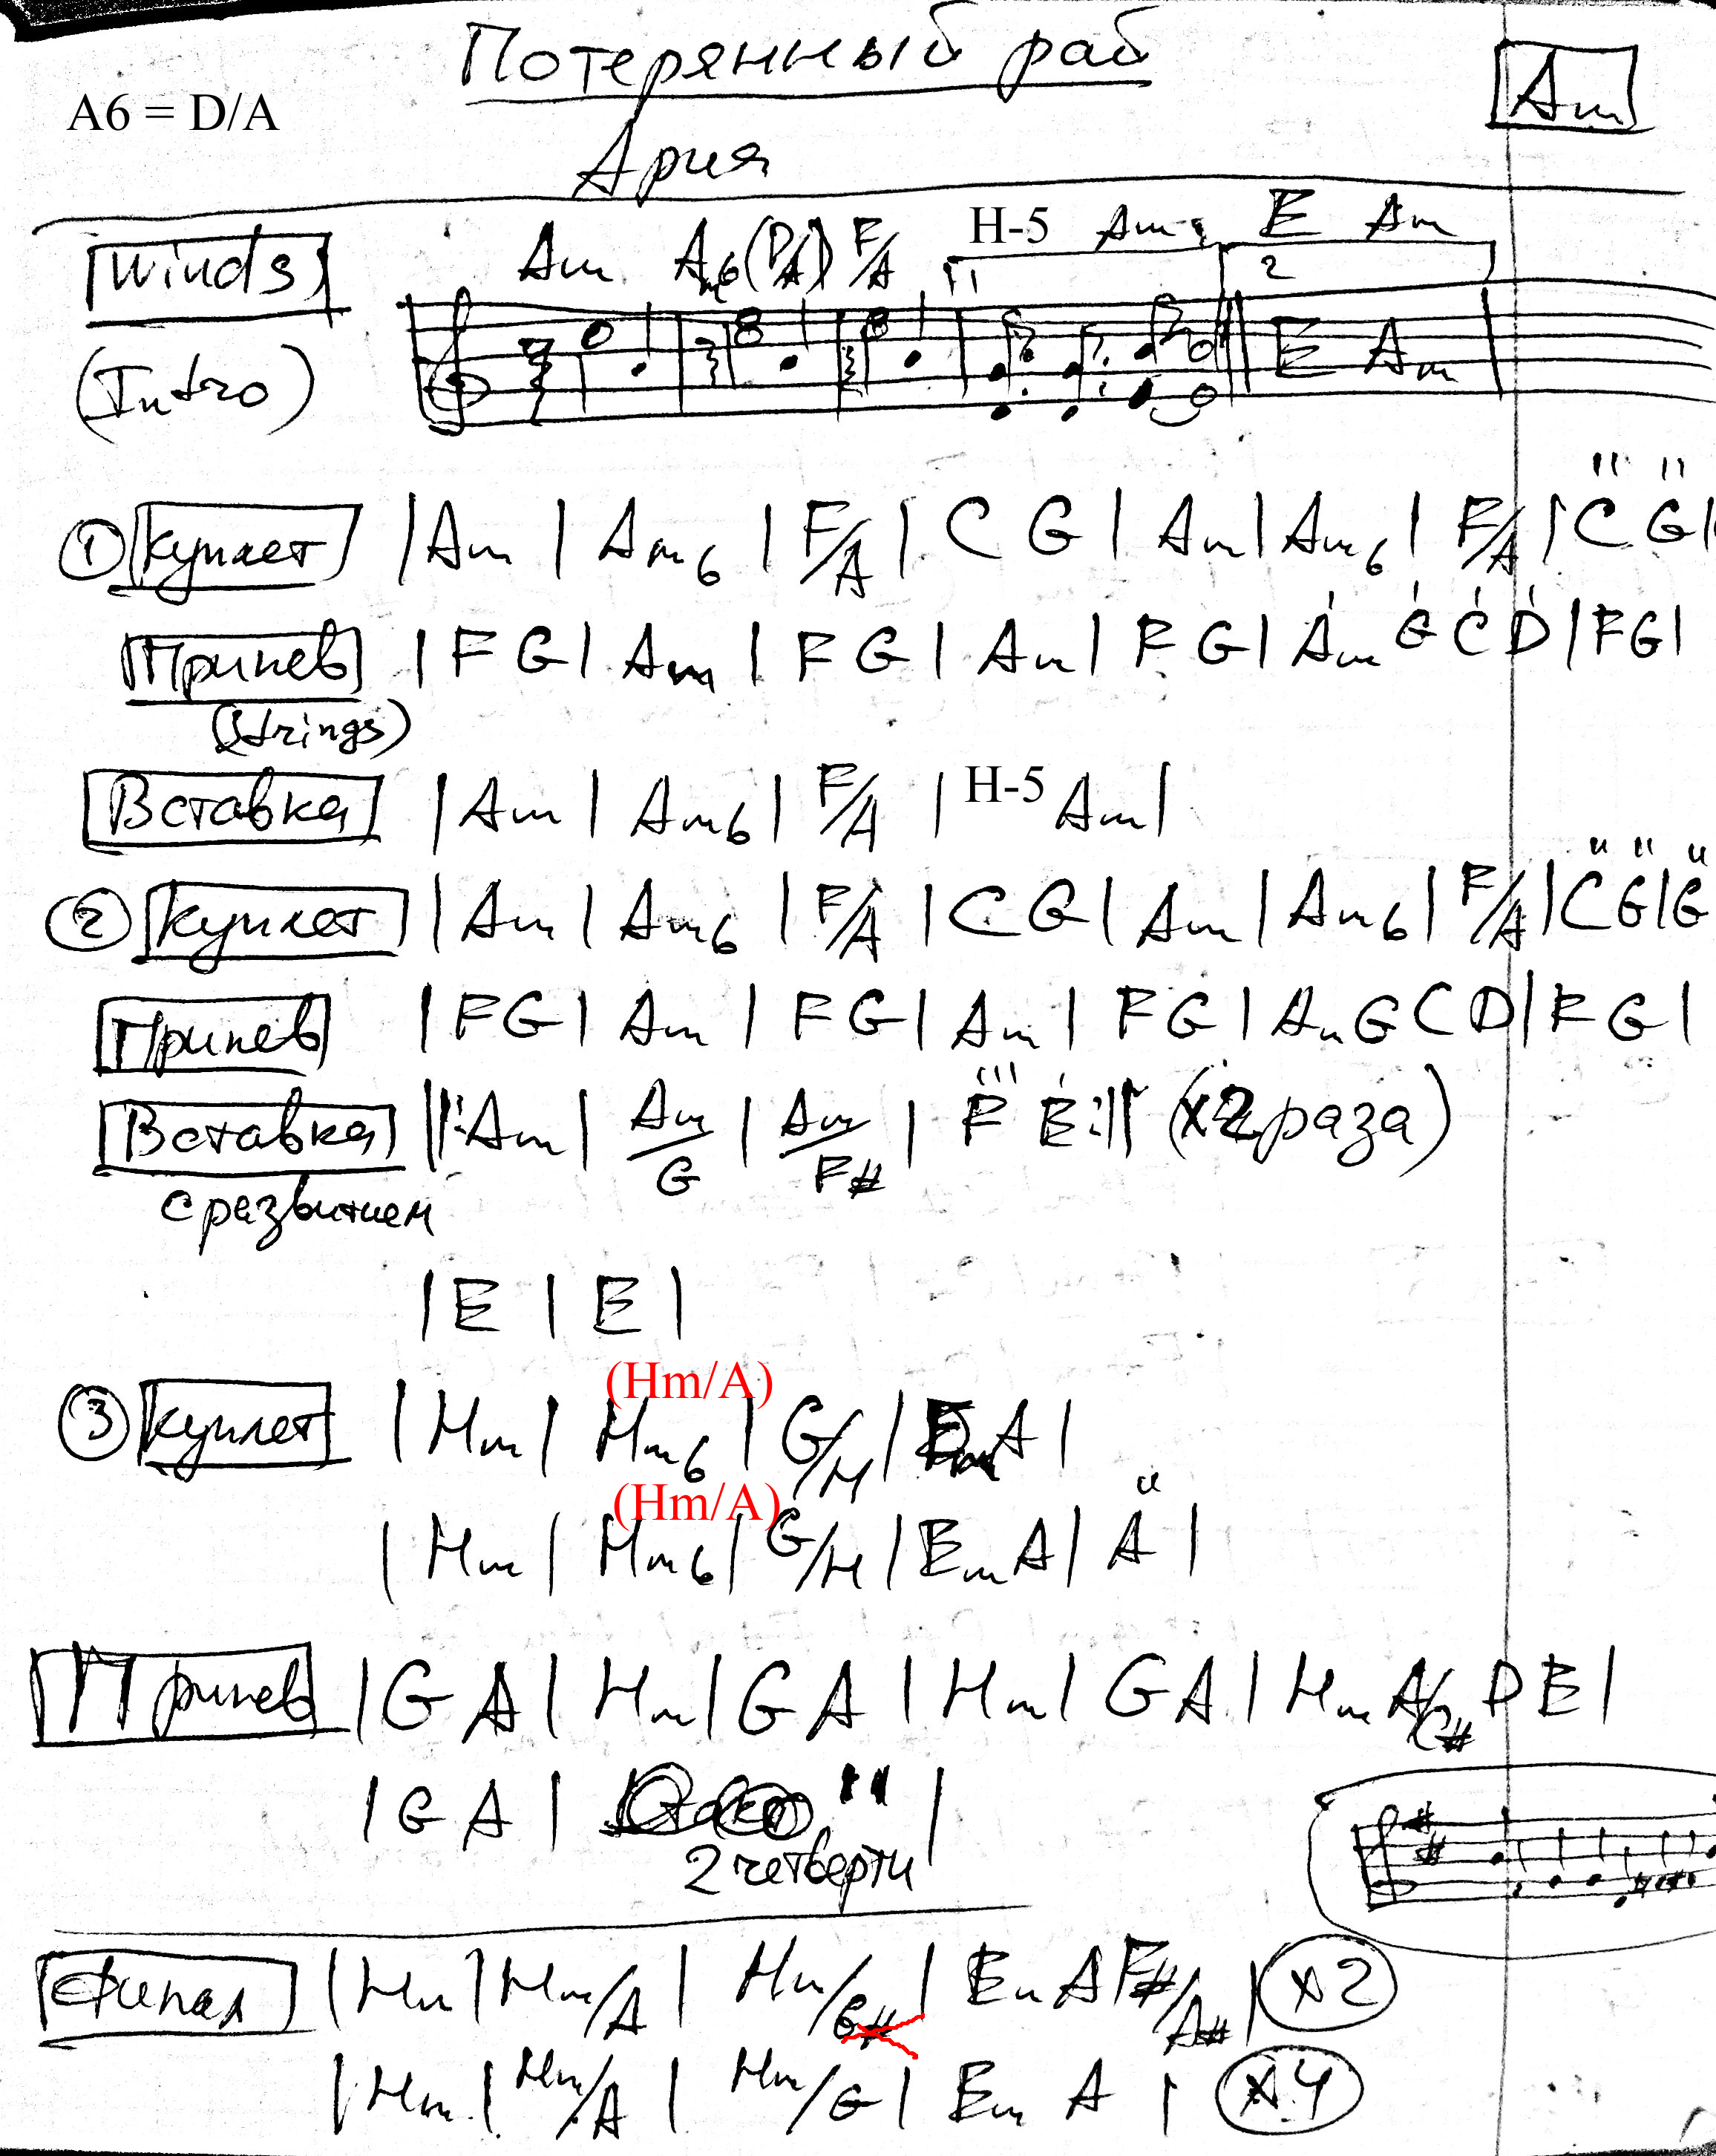 Потерянный рай
A6 = D/A
Am
Ария
Winds
Am Am6(D/A) F/A H-5 Am E Am
1 2
(Intro)
E Am
① куплет |Am | Am6 | F/A | C G | Am | Am6 | F/A | C G |
Припев | F G | Am | F G | Am | F G | Am G C D | F G |
(Strings)
Вставка | Am | Am6 | F/A | H-5 Am |
② куплет | Am | Am6 | F/A | C G | Am | Am6 | F/A | C G | G
Припев | F G | Am | F G | Am | F G | Am G C D | F G |
Вставка ||: Am | Am/G | Am/F# | F E :|| (x2 раза)
с развитием
| E | E |
(Hm/A)
③ куплет | Hm | Hm6 | G/H | Em A |
(Hm/A)
| Hm | Hm6 | G/H | Em A | A |
Припев | G A | Hm | G A | Hm | G A | Hm A/C# D E |
| G A | " |
2 четверти
Финал | Hm | Hm/A | Hm/G# | Em A F#/A# | x2
| Hm | Hm/A | Hm/G | Em A | x4